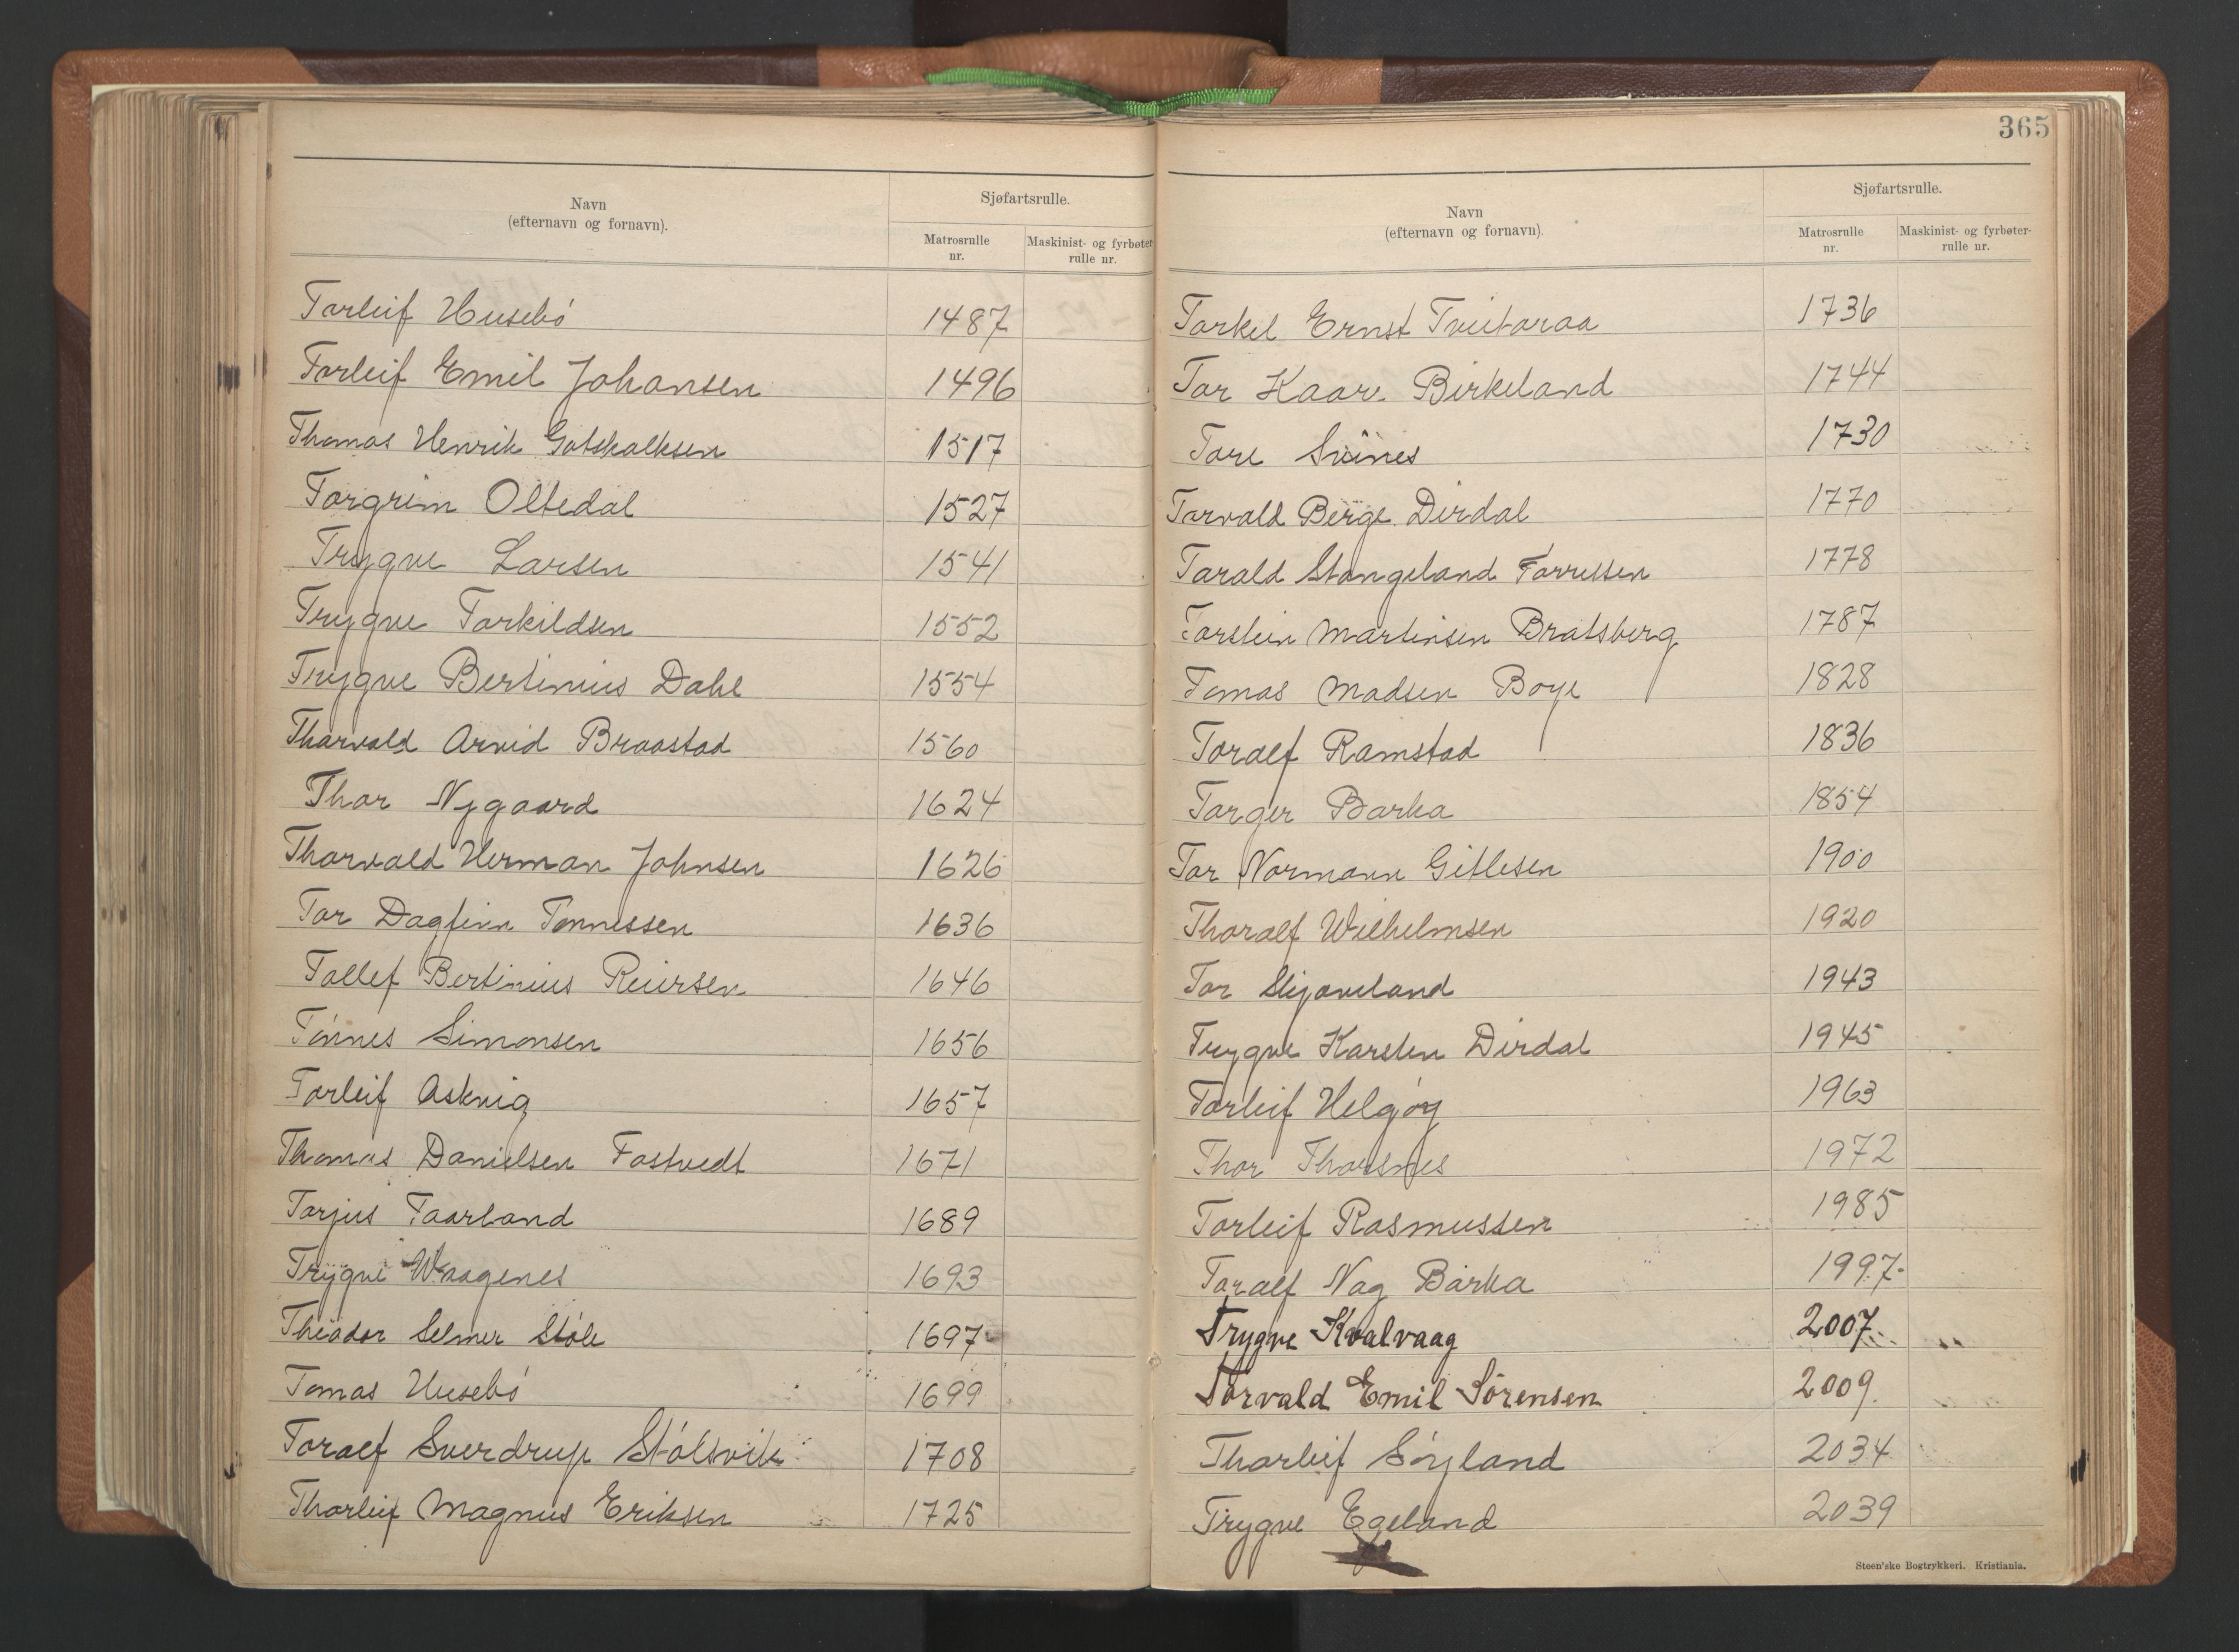 Navn
(efternavn og fornavn).
Sjøfartsrulle.
Matrosrulle
nr.
Maskinist- og fyrbøter
rulle nr.
Torleif Husebö 1487
Torleif Emil Johansen 1496
Thomas Henrik Gotskalksen 1517
Torgrim Oltedal 1527
Trygve Larsen 1541
Trygve Torkildsen 1552
Trygve Bertinius Dahl 1554
Thorvald Arvid Braastad 1560
Thor Nygaard 1624
Thorvald Herman Johnsen 1626
Tor Dagfinn Tønnessen 1636
Tollef Bertinius Reiersen 1646
Tönnes Simonsen 1656
Torleif Askvig 1657
Thomas Danielsen Fostvedt 1671
Torjus Taarland 1689
Trygve Waagenes 1693
Theodor Selmer Støle 1697
Tomas Husebö 1699
Toralf Sverdrup Stölsvik 1708
Thorleif Magnus Eriksen 1725
365
Navn
(efternavn og fornavn).
Sjøfartsrulle.
Matrosrulle
nr.
Maskinist- og fyrbøter-
rulle nr.
Torkel Ernst Tveitaraa 1736
Tor Kaare Birkeland 1744
Tore Svines 1730
Torvald Berge Dirdal 1770
Torald Stangeland Torressen 1778
Torstein Martinsen Bratsberg 1787
Tomas Madsen Boye 1828
Toralf Ramstad 1836
Torger Barka 1854
Tor Normann Gitlesen 1900
Thoralf Wilhelmsen 1920
Tor Skjæveland 1943
Trygve Karsten Dirdal 1945
Torleif Helgöy 1963
Thor Thorsnes 1972
Torleif Rasmussen 1985
Toralf Nag Barka 1997
Trygve Kvalvaag 2007
Torvald Emil Sörensen 2009
Thorleif Söyland 2034
Trygve Egeland 2039
Steen'ske Bogtrykkeri. Kristiania.